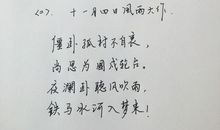 (2). 十一月四日风雨大作.
僵卧孤村不自哀,
尚思为国戍轮台.
夜阑卧听风吹雨,
铁马冰河入梦来!